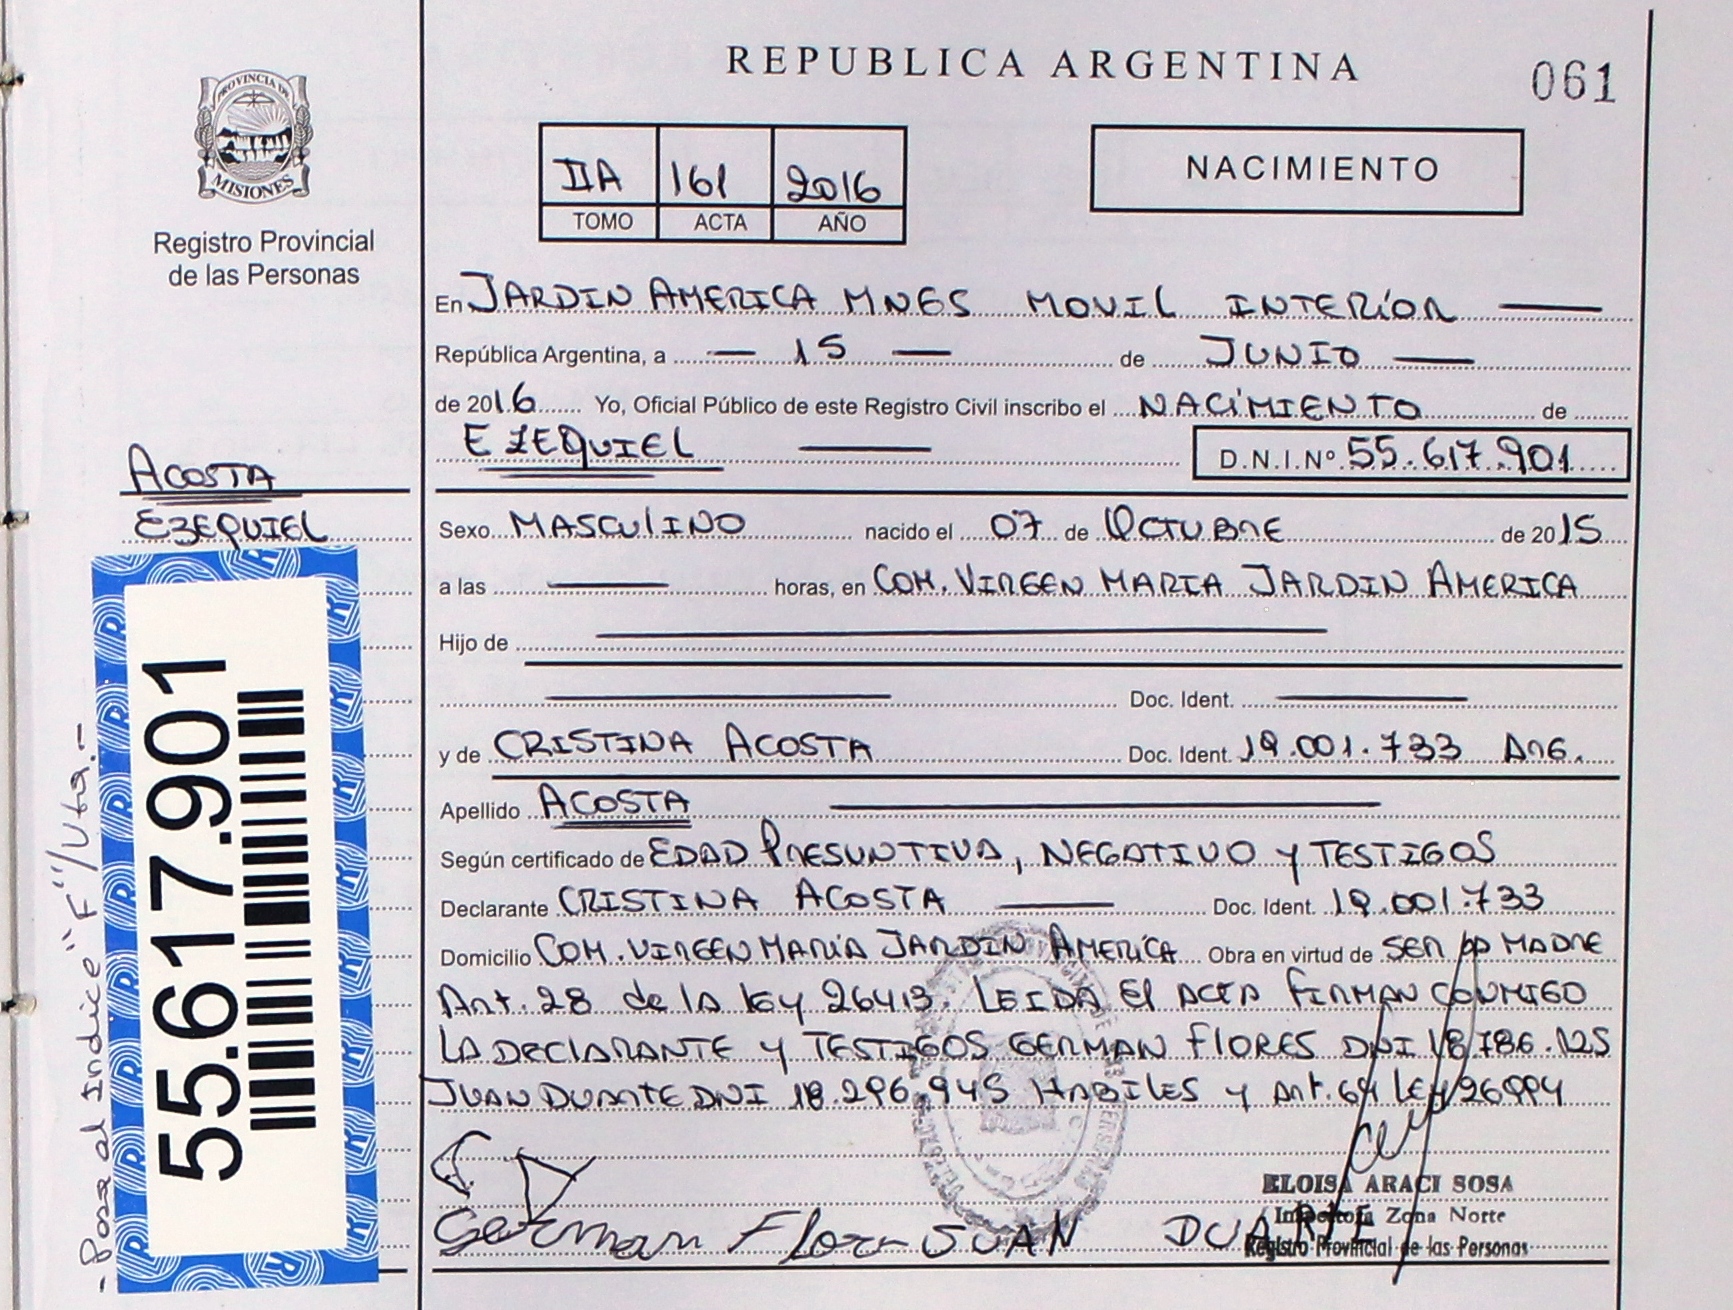 REPUBLICA ARGENTINA
061
PROVINCIA DE
MISIONES
Registro Provincial
de las Personas
IIA 161 2016
TOMO ACTA AÑO
NACIMIENTO
En JARDIN AMERICA MNES MOVIL INTERIOR
República Argentina, a 15 de JUNIO
de 2016 Yo, Oficial Público de este Registro Civil inscribo el NACIMIENTO de
EZEQUIEL D.N.I.Nº 55.617.901
ACOSTA
EZEQUIEL
Sexo MASCULINO nacido el 07 de OCTUBRE de 2015
a las horas, en COM. VIRGEN MARIA JARDIN AMERICA
Hijo de
Doc. Ident.
y de CRISTINA ACOSTA Doc. Ident. 19.001.733 ARG.
Apellido ACOSTA
Según certificado de EDAD PRESUNTIVA, NEGATIVO y TESTIGOS
Declarante CRISTINA ACOSTA Doc. Ident. 19.001.733
Domicilio COM. VIRGEN MARIA JARDIN AMERICA Obra en virtud de SER MADRE
Art. 28 de la ley 26413. LEIDA El ACTA FIRMAN CONMIGO
LA DECLARANTE y TESTIGOS GERMAN FLORES DNI 18.786.125
JUAN DUARTE DNI 18.296.945 HABILES y Art. 64 LEY 26994
55.617.901
- Pasa al Indice "F"/Vta.-
German Flor JUAN DUARTE
ELOISA ARACI SOSA
Inspectora Zona Norte
Registro Provincial de las Personas